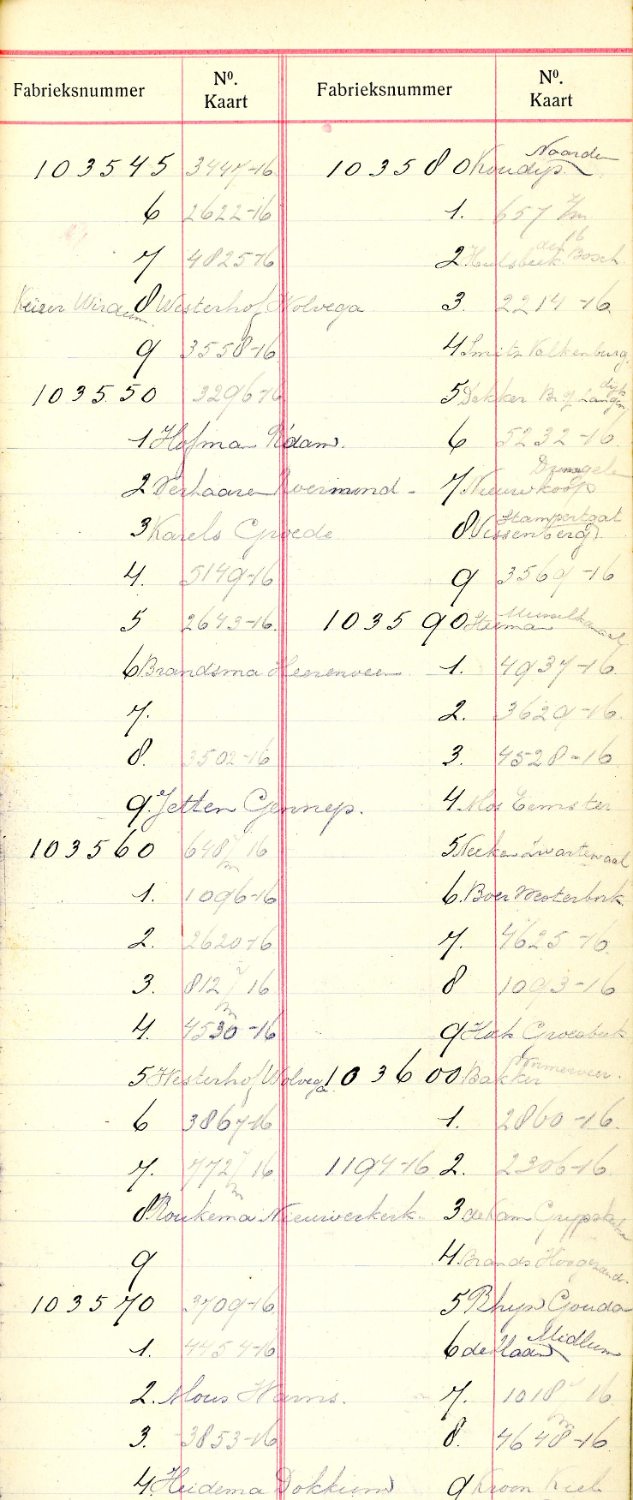 Fabrieksnummer Nº. Kaart
103545 3447-16
6 2622-16
7 4825-16
Keizer Wirdum 8 Westerhof Wolvega
9 3558-16
103550 3296-16
1 Hofman R'dam.
2 Verhaaren Roermond
3 Karels Groede
4. 5149-16
5 2643-16.
6 Brandsma Heerenveen
7.
8. 3502-16
9. Jetten Gennep.
103560 648 16
1. 1096-16
2. 2620-16
3. 812 16
4. 4530-16
5 Westerhof Wolvega
6 3867-16
7. 772 16
8. Roukema Nieuwerkerk.
9
103570 3709-16
1. 4454-16
2. Mous Harns.
3. 3853-16
4. Heidema Dokkum
Fabrieksnummer Nº. Kaart
103580 Koudijs. Naarden
1. 657
2 Hulsbeek den Bosch
3. 2214-16.
4 Smits Valkenburg.
5 Dekker
6 5232-16.
7 Nieuwkoop
8 Vissenberg Stampertgat
9 3569-16
103590
1. 4937-16.
2. 3629-16.
3. 4528-16
4. Mos Eemster
5 Zwartewaal
6. Boer Westerbork
7. 4625-16.
8 1093-16
9 Hak Groesbeek
103600 Bakker
1. 2860-16.
1194-16 2. 2306-16.
3 de Kam Grijpskerke
4 Brands Hoogezand.
5 Rhijn Gouda
6 de Haan Midlum
7. 1018 16
8. 4648-16.
9 Kroon Kiel